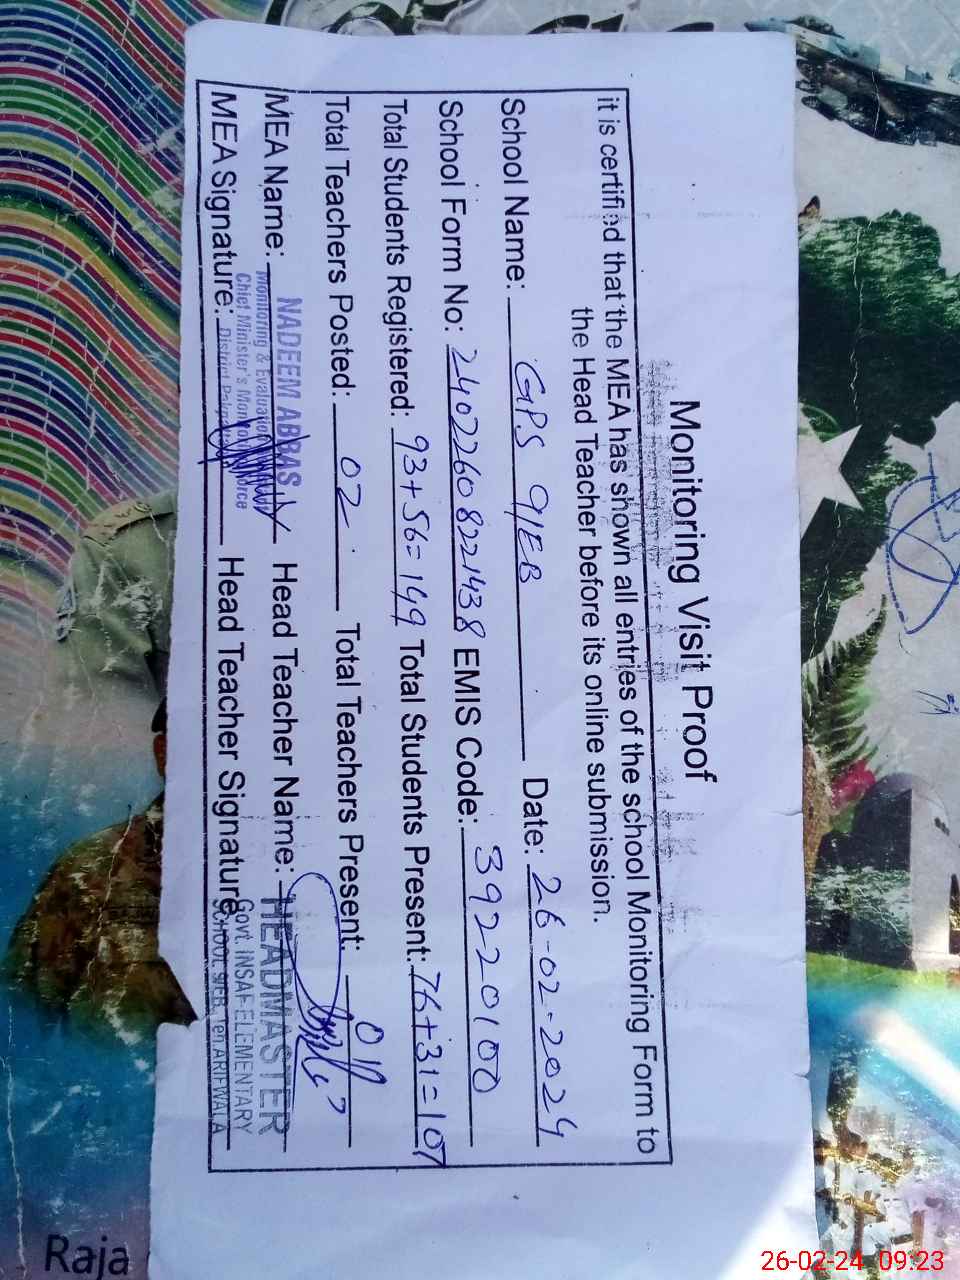 Monitoring Visit Proof
it is certified that the MEA has shown all entries of the school Monitoring Form to
the Head Teacher before its online submission.
School Name: GPS 9/EB Date: 26-02-2024
School Form No: 24022608221438 EMIS Code: 39220100
Total Students Registered: 93+56=149 Total Students Present: 76+31=107
Total Teachers Posted: 02 Total Teachers Present:
MEA Name: NADEEM ABBAS Head Teacher Name: HEADMASTER
Monitoring & Evaluation
Chief Minister's Monitoring Force
Govt. INSAF ELEMENTARY
MEA Signature: District Pakpattan Head Teacher Signature
SCHOOL 9/EB, Teh ARIFWALA
Raja
26-02-24 09:23